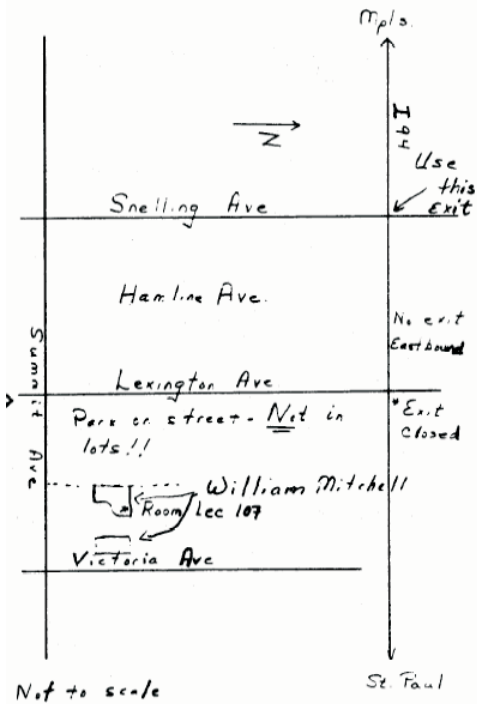 Mpls.
I 94
N
Use
this
Exit
Snelling Ave
Hamline Ave.
No exit
Eastbound
Summit Ave
Lexington Ave
*Exit
Closed
Park on street - Not in
lots!!
William Mitchell
Room/Lec 107
Victoria Ave
Not to scale
St. Paul